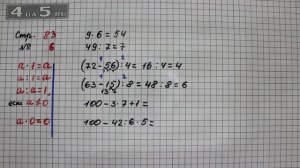 4 а 5.net
Стр. 83
№ 6
а · 1 = а
а : 1 = а
а : а = 1,
если а ≠ 0
а · 0 = 0
9 · 6 = 54
49 : 7 = 7
1 2
(72 - 56) : 4 = 16 : 4 = 4
1 2
(63 - 15) : 8 = 48 : 8 = 6
100 - 3 · 7 + 1 =
100 - 42 : 6 · 5 =